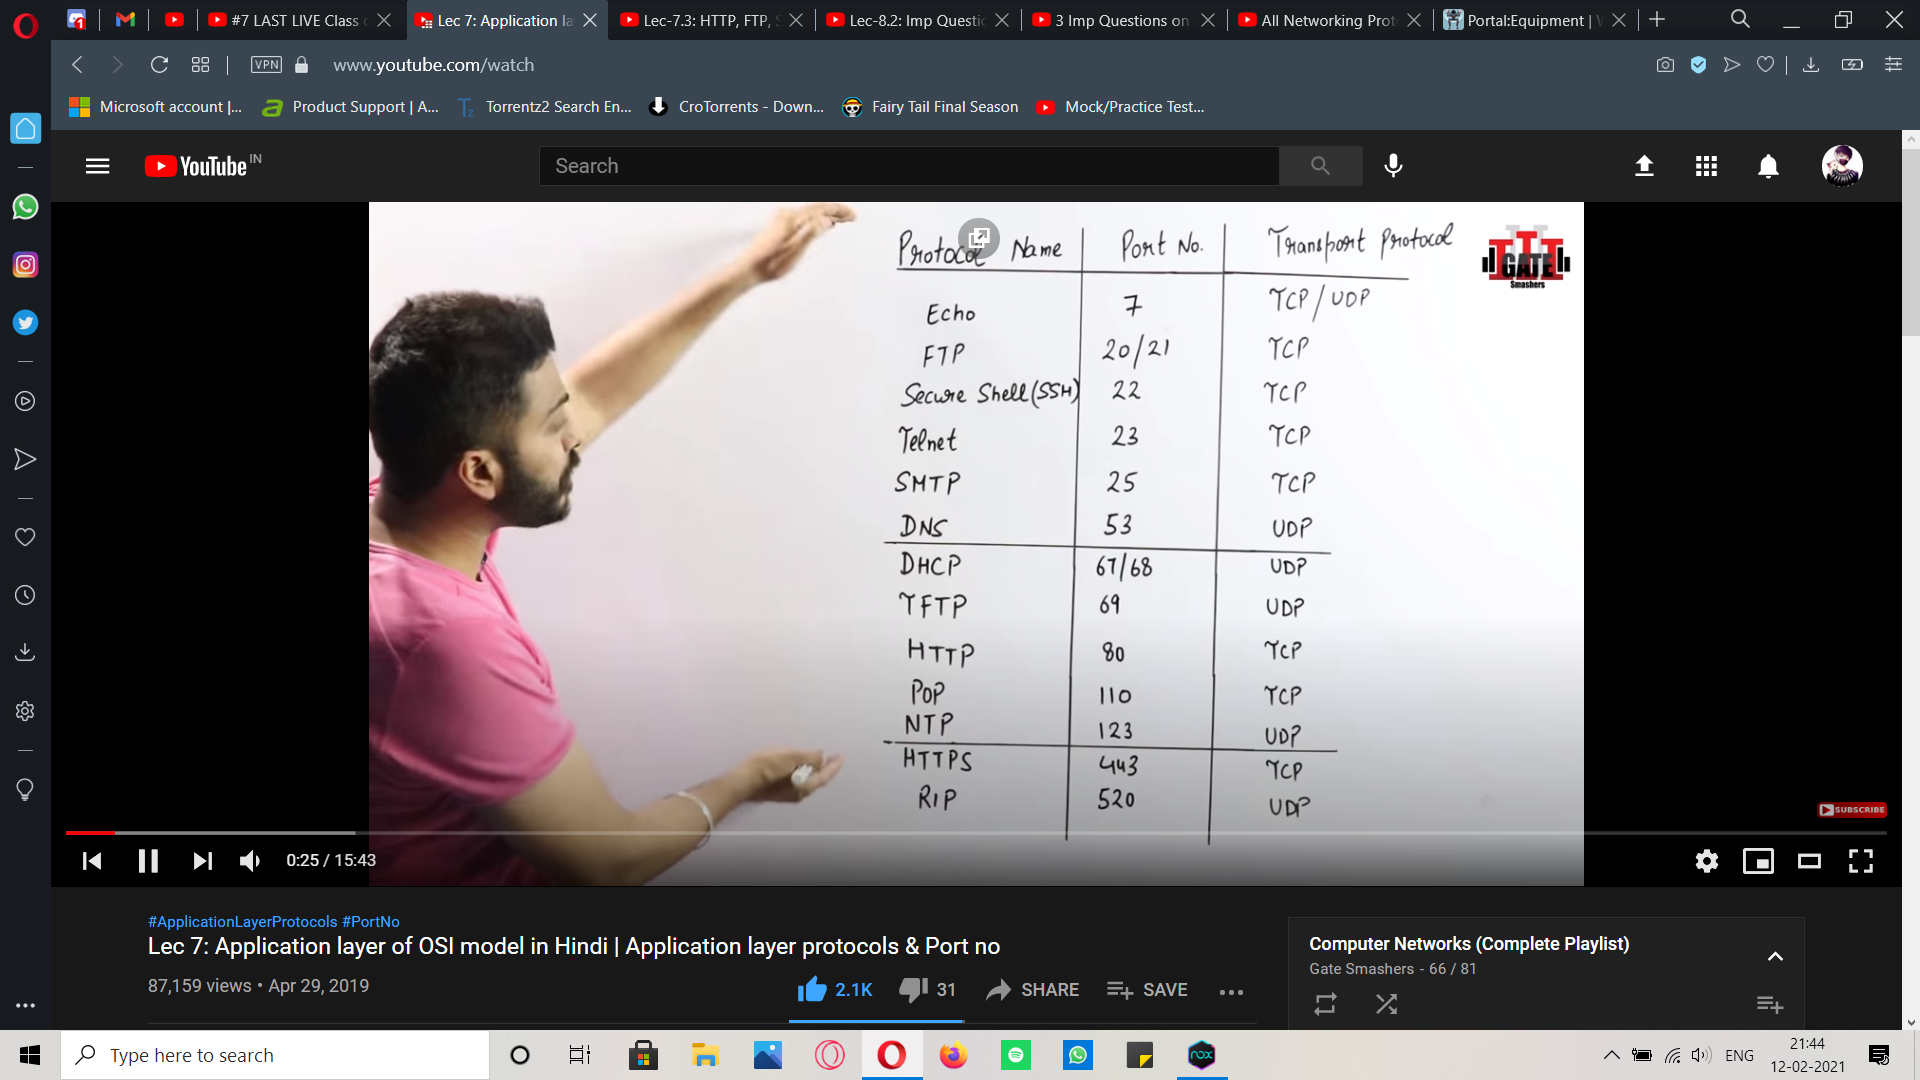 #7 LAST LIVE Class
Lec 7: Application la
Lec-7.3: HTTP, FTP, S
Lec-8.2: Imp Questic
3 Imp Questions on
All Networking Prot
Portal:Equipment |
VPN
www.youtube.com/watch
Microsoft account |...
Product Support | A...
Torrentz2 Search En...
CroTorrents - Down...
Fairy Tail Final Season
Mock/Practice Test...
YouTube IN
Search
Protocol Name Port No. Transport Protocol
Echo 7 TCP/UDP
FTP 20/21 TCP
Secure Shell(SSH) 22 TCP
Telnet 23 TCP
SMTP 25 TCP
DNS 53 UDP
DHCP 67/68 UDP
TFTP 69 UDP
HTTP 80 TCP
POP 110 TCP
NTP 123 UDP
HTTPS 443 TCP
RIP 520 UDP
GATE
Smashers
SUBSCRIBE
0:25 / 15:43
#ApplicationLayerProtocols #PortNo
Lec 7: Application layer of OSI model in Hindi | Application layer protocols & Port no
87,159 views • Apr 29, 2019
2.1K
31
SHARE
SAVE
Computer Networks (Complete Playlist)
Gate Smashers - 66 / 81
Type here to search
nox
ENG
21:44
12-02-2021